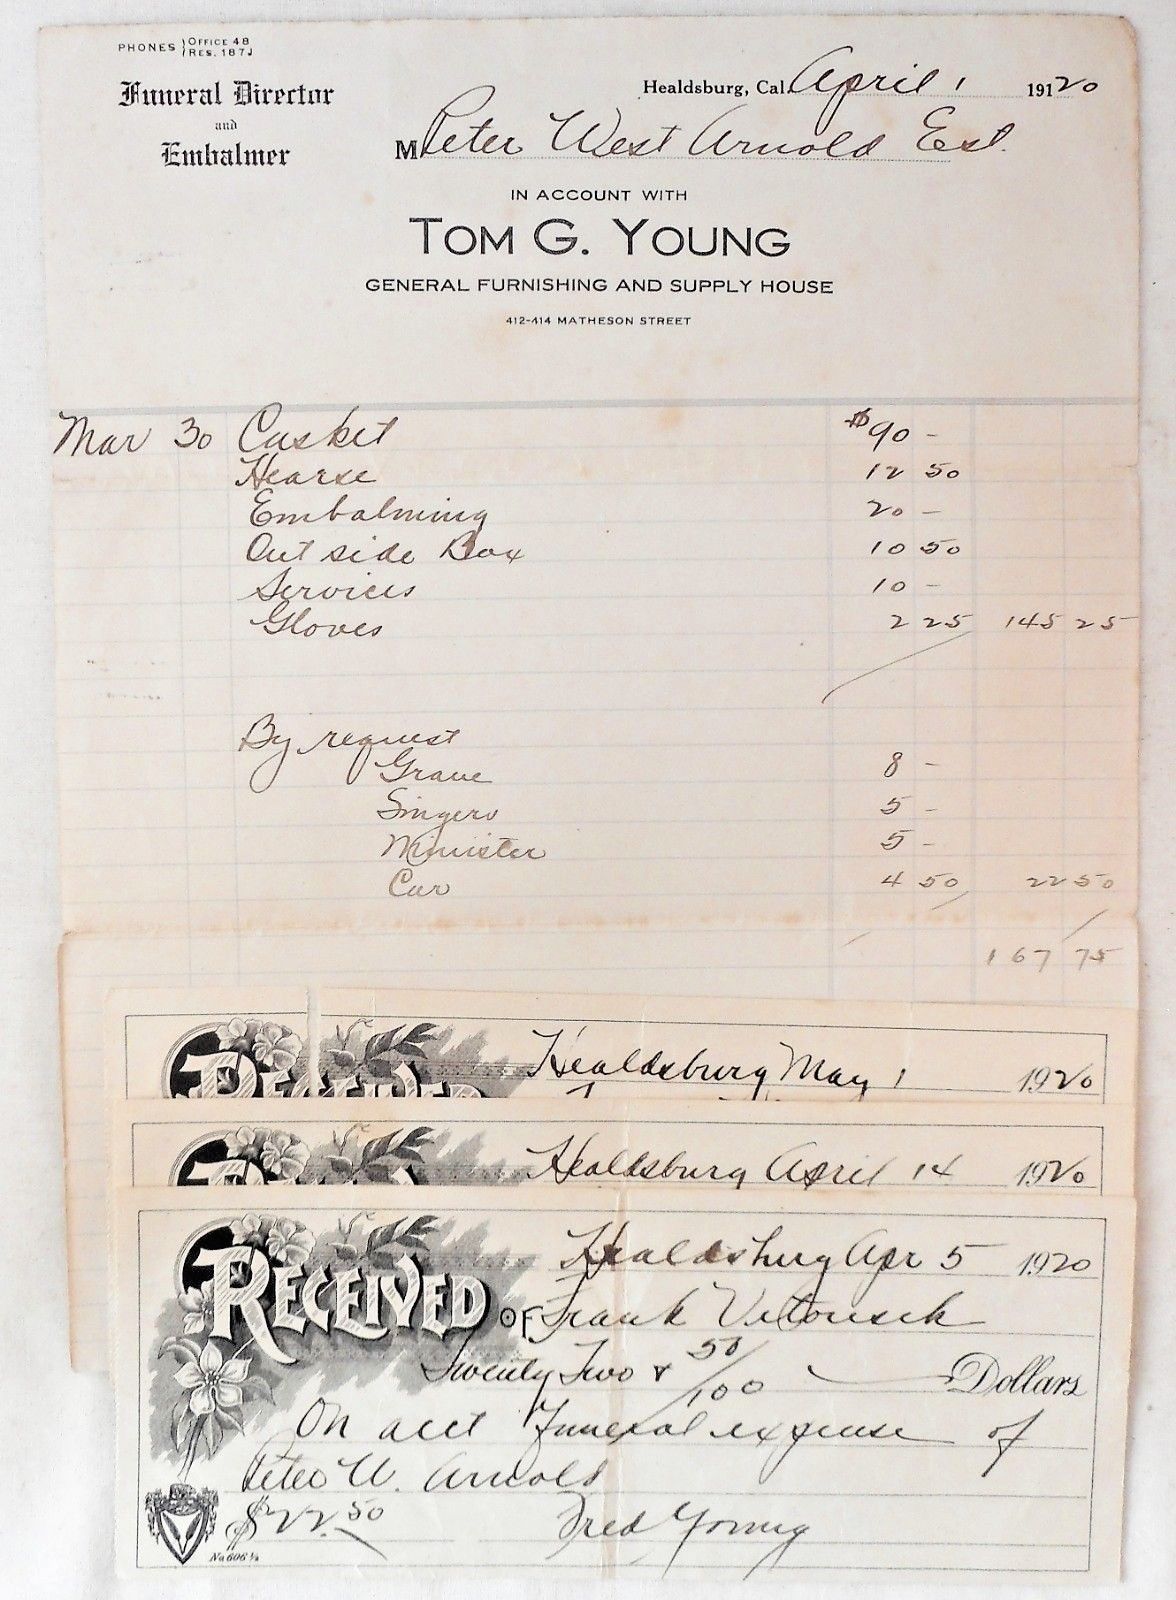 PHONES { OFFICE 48
RES. 187J
Funeral Director
and
Embalmer
Healdsburg, Cal. April 1 1920
M Peter West Arnold Est.
IN ACCOUNT WITH
TOM G. YOUNG
GENERAL FURNISHING AND SUPPLY HOUSE
412-414 MATHESON STREET
Mar 30 Casket $90 -
Hearse 12 50
Embalming 20 -
Out side Box 10 50
Services 10 -
Gloves 2 25 145 25
By request
Grave 8 -
Singers 5 -
Minister 5 -
Car 4 50 22 50
167 75
RECEIVED Healdsburg May 1 1920
Healdsburg April 14 1920
Healdsburg Apr 5 1920
RECEIVED OF Frank Vitousek
Twenty Two & 50/100 Dollars
On acct Funeral expense of
Peter W. Arnold
$22.50 Fred Young
No 606 ½